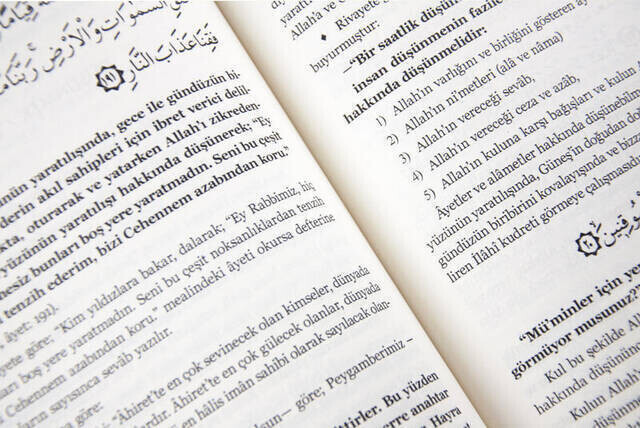 قِيَامًا
السَّمٰوَاتِ وَالْاَرْضِ رَبَّنَا
فَقِنَا عَذَابَ النَّارِ ﴿١٩١﴾
yaratılışında, gece ile gündüzün bi-
akıl sahipleri için ibret verici delil-
oturarak ve yatarken Allah'ı zikreden-
yüzünün yaratılışı hakkında düşünerek; "Ey
bunları boş yere yaratmadın. Seni bu çeşit
tenzih ederim, bizi Cehennem azabından koru."
âyet: 191).
göre; "Kim yıldızlara bakar, dalarak; "Ey Rabbimiz, hiç
boş yere yaratmadın. Seni bu çeşit noksanlıklardan tenzih
Cehennem azabından koru." mealindeki âyeti okursa defterine
sayısınca sevâb yazılır.
göre:
"Âhiret'te en çok sevinecek olan kimseler, dünyada
Âhiret'te en çok gülecek olanlar, dünyada
en hâlis imân sahibi olarak sayılacak olan-
göre; Peygamberimiz –
Bu yüzden
anahtar
Hayra
Allah'a
♦ Rivayete
buyurmuştur:
—"Bir saatlik düşün
insan düşünmenin
hakkında düşünmelidir:
1) Allah'ın varlığını ve birliğini gösteren
2) Allah'ın ni'metleri (alâ ve nâma)
3) Allah'ın vereceği sevâb,
4) Allah'ın vereceği ceza ve azâb,
5) Allah'ın kuluna karşı bağışları ve kulun
Âyetler ve alâmetler hakkında düşünebilme
yüzünün yaratılışında. Güneş'in doğudan
gündüzün biribirini kovalayışında ve
liren İlâhî kudreti görmeye çalışması
﴿٢٠﴾
"Mü'minler için
görmüyor musunuz
Kul bu şekilde
hakkında
Kulun Allah